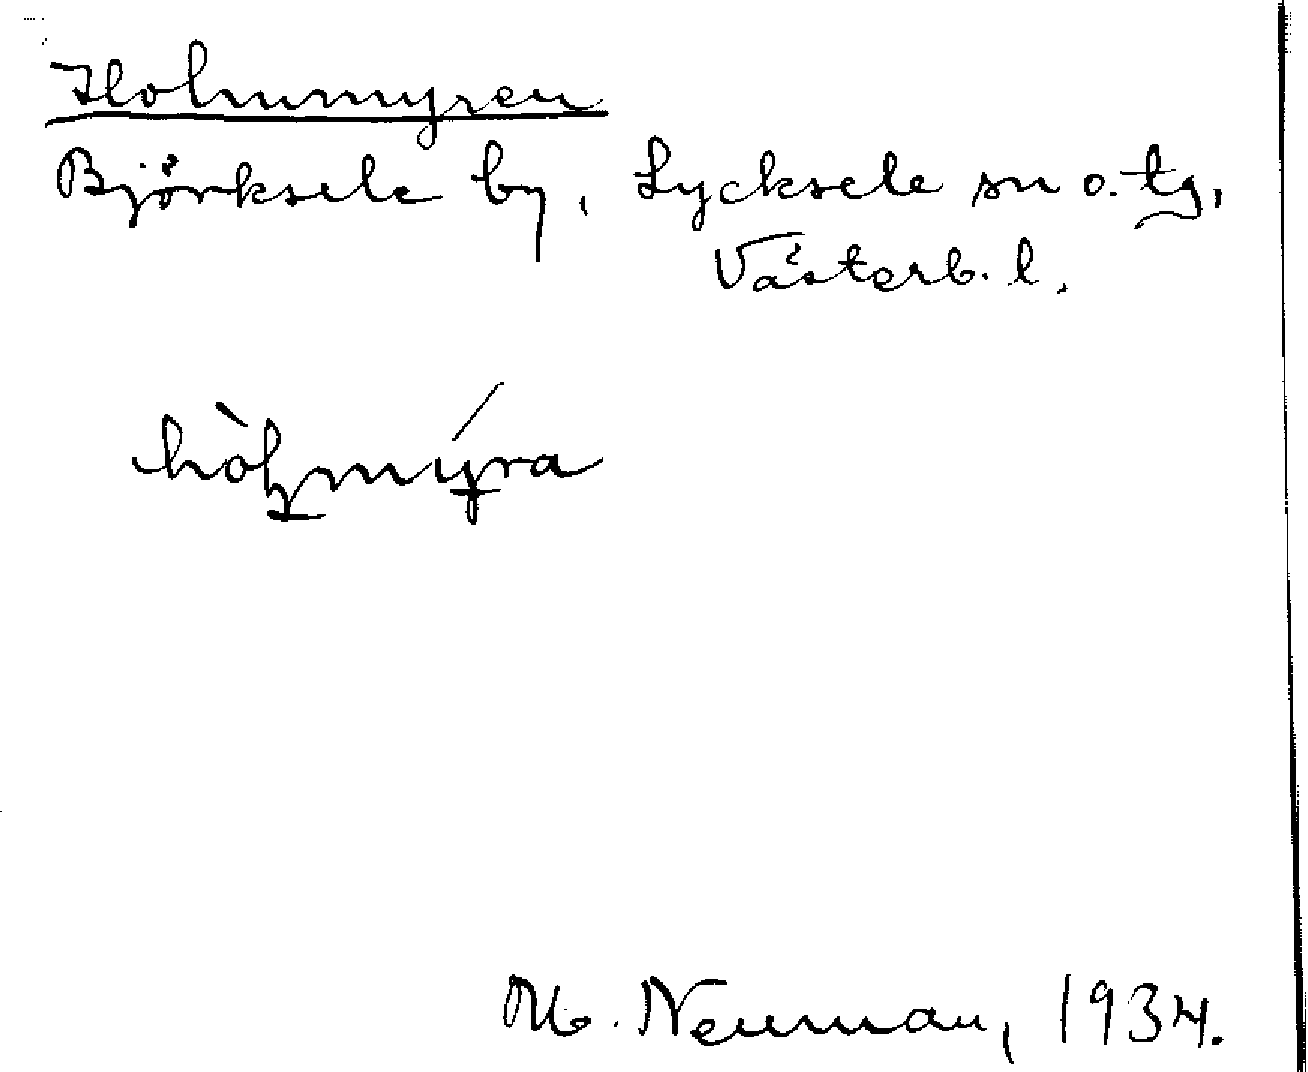 Holmmyren
Björksele by, Lycksele sn o. tg,
Västerb. l.
hòlmýra
M. Neuman, 1934.